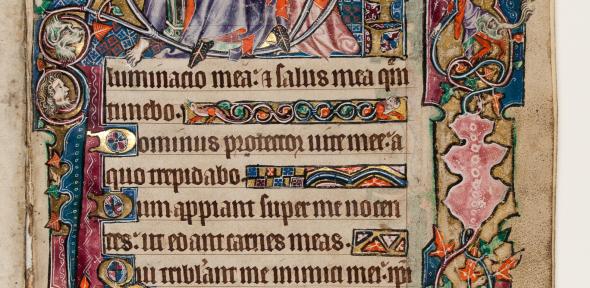 luminacio mea: ⁊ salus mea quē
timebo.
Dominus protector uite mee: a
quo trepidabo.
Dum appiant super me nocen
tes: ut edant carnes meas.
Qui tribʼlant me inimici mei: ipi